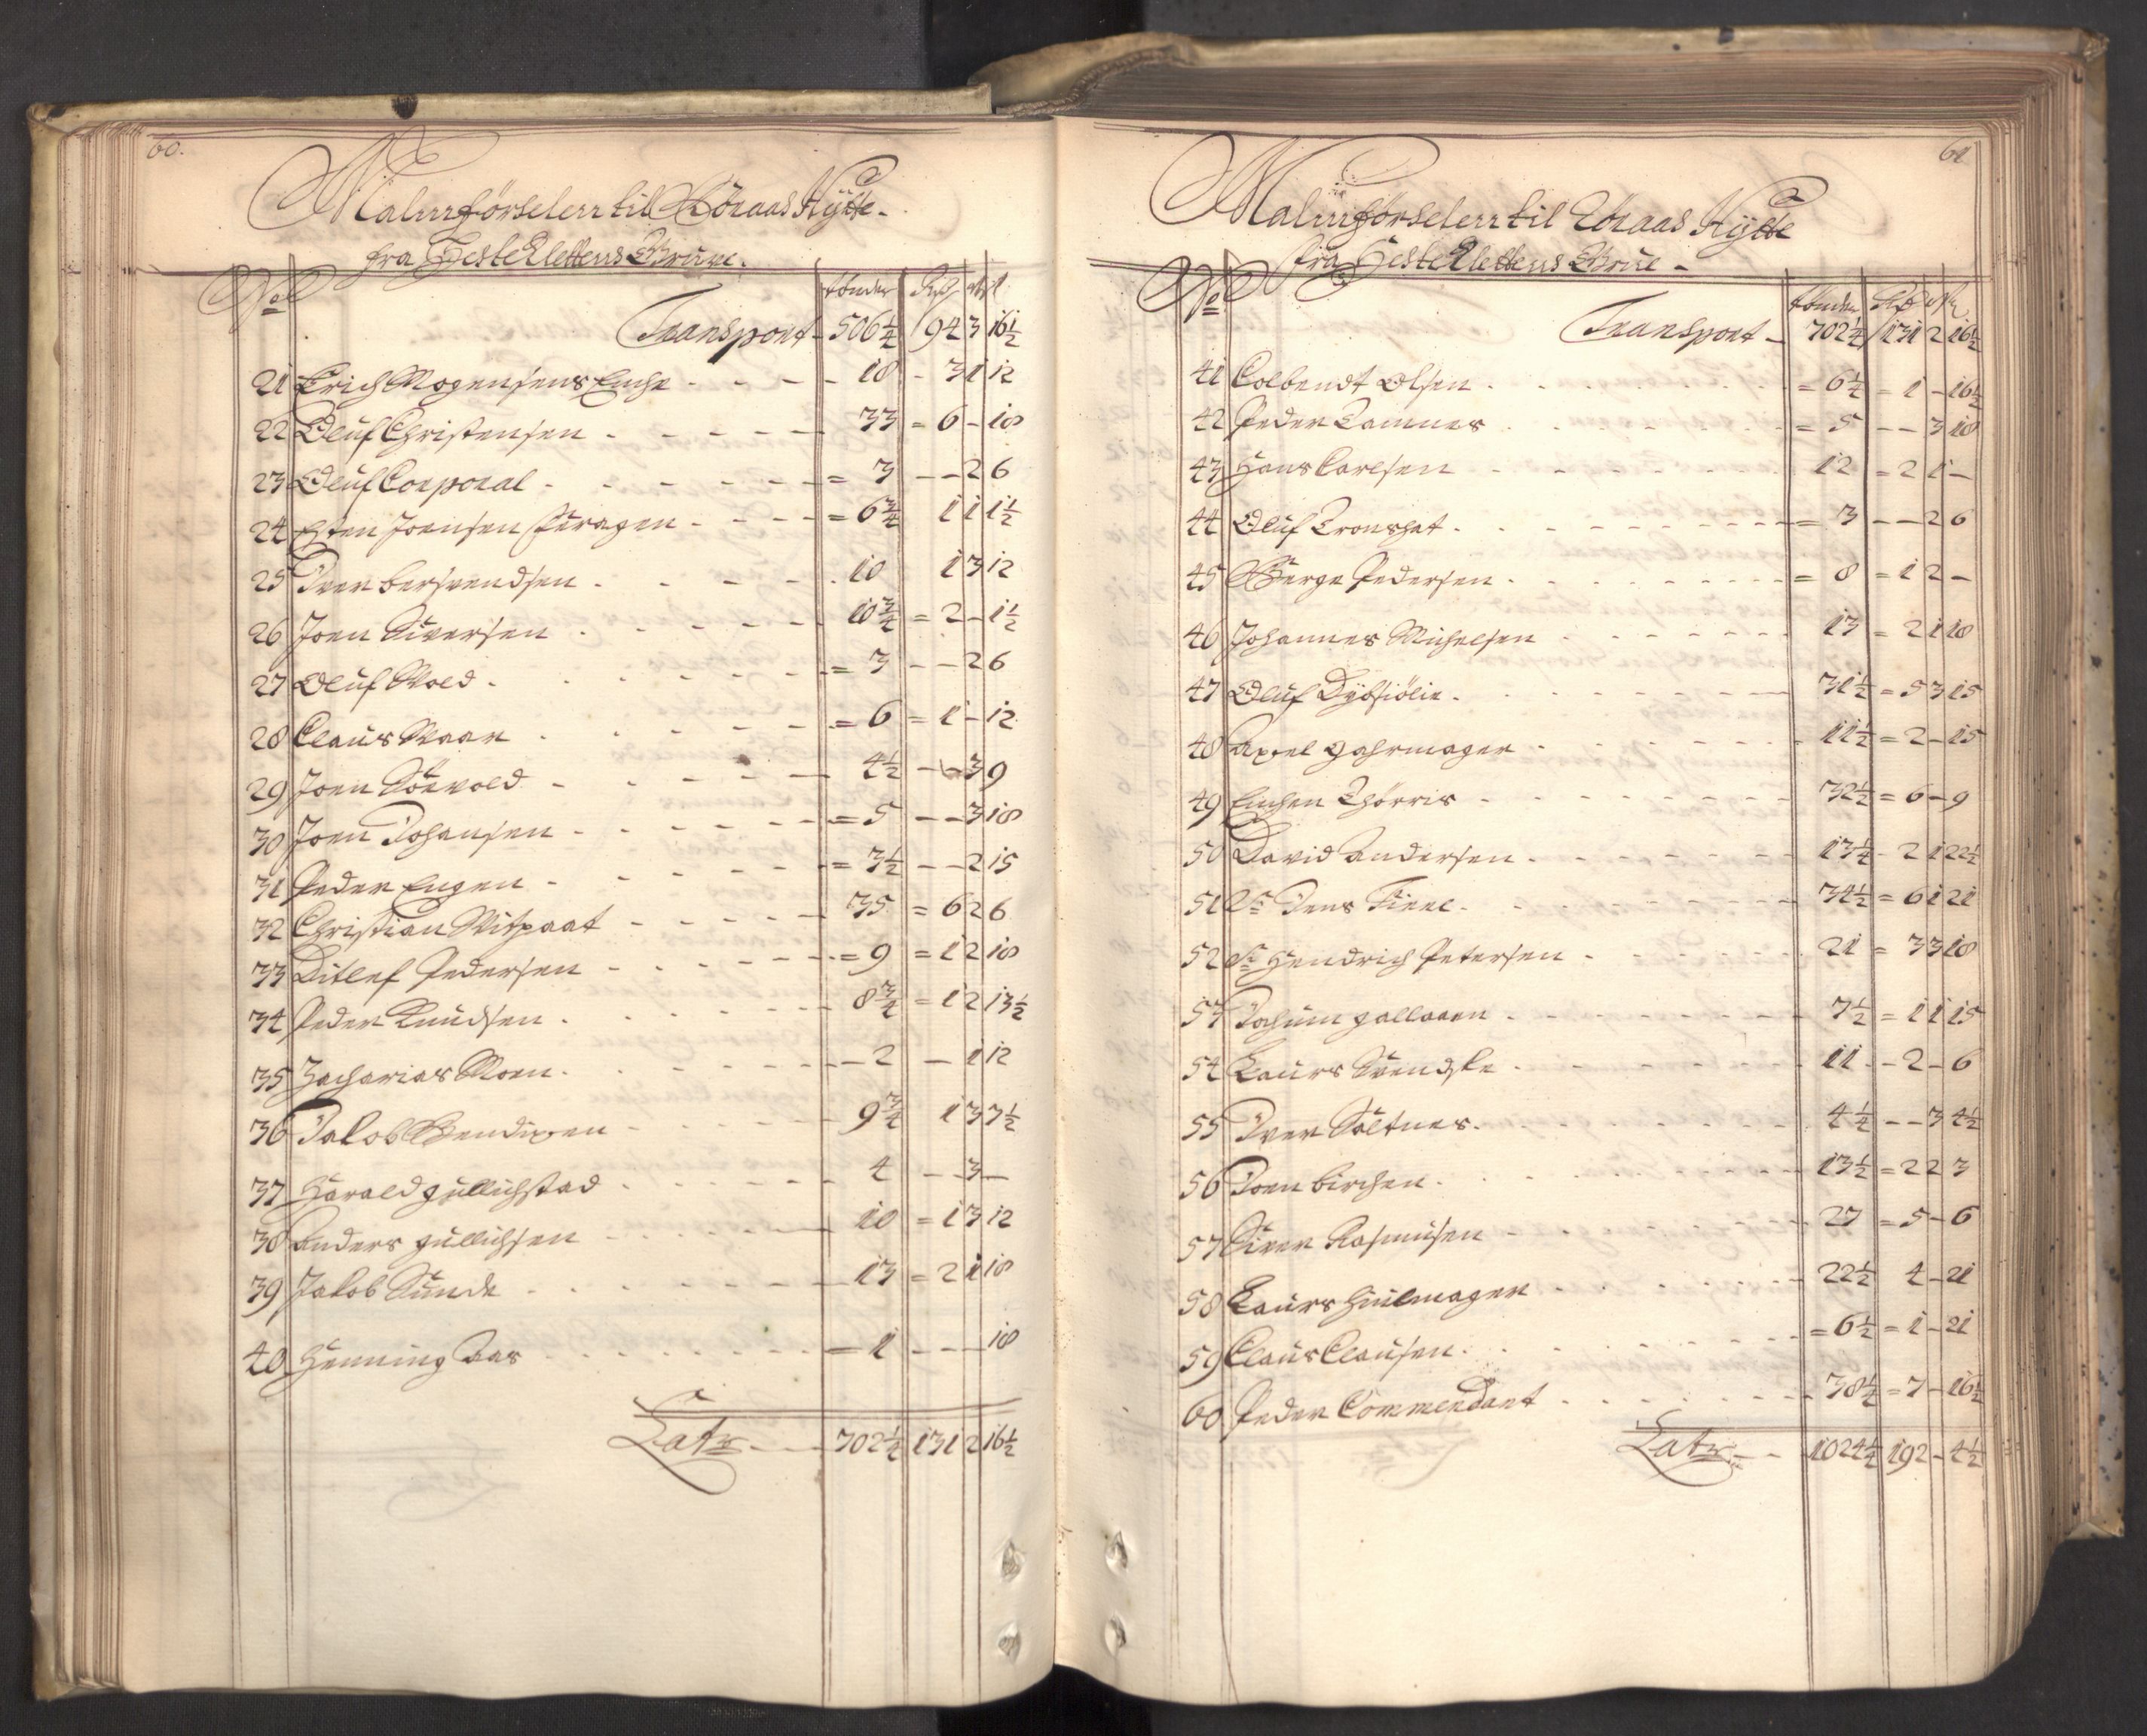 60.
Malmförselen til Röraas Hÿtte
fra HesteKlettens Grúve.
No tönder Rdr ort ß
Transport - 506 1/4 94 3 16 1/2
21 Erich Mogensens Enche - - - 18 - 3 1 12
22 Olúf Christensen - - - 33 = 6 - 18
23 Olúf Corporal - - - = 3 - - 2 6
24 Esten Joensen - - - = 6 3/4 1 1 1 1/2
25 Iver Bersvendsen - - - 10 1 3 12
26 Joen Siversen - - - 10 3/4 = 2 - 1 1/2
27 Olúf Moed - - - = 3 - - 2 6
28 Claús Maar - - - = 6 = 1 - 12
29 Joen Söevold - - - 4 1/2 - - 3 9
30 Joen Johansen - - - = 5 - - 3 18
31 Peder Engen - - - = 3 1/2 - - 2 15
32 Christian - - - 35 = 6 2 6
33 Ditlef Pedersen - - - = 9 = 1 2 18
34 Peder Knúdsen - - - 8 3/4 = 1 2 13 1/2
35 Zacharias Moen - - - 2 - 1 12
36 Jakob Bendixen - - - 9 3/4 1 3 3 1/2
37 Harald Gúllichstad - - - 4 - 3 -
38 Anders Gúllichsen - - - 10 = 1 3 12
39 Jakob Súnde - - - 13 = 2 1 18
40 Henning Aas - - - 1 - - - 18
Latr - 702 1/4 131 2 16 1/2
61
Malmförselen til Röraas Hÿtte
fra HesteKlettens Grúe -
No tönder Rdr ort ß
Transport - 702 1/4 131 2 16 1/2
41 Colbendt Olsen - - - = 6 1/4 = 1 - 16 1/2
42 Peder Tamnes - - - = 5 - - 3 18
43 Hans Carlsen - - - 12 = 2 1 -
44 Olúf - - - = 3 - - 2 6
45 Börge Pedersen - - - = 8 = 1 2 -
46 Johannes Michelsen - - - 13 = 2 1 18
47 Olúf Dÿbsiölie - - - 31 1/2 = 5 3 15
48 Axel Gahrmager - - - 11 1/2 = 2 - 15
49 Enchen Thörris - - - 32 1/2 = 6 - 9
50 David Andersen - - - 13 1/4 - 2 1 22 1/2
51 Sr Jens - - - 34 1/2 = 6 1 21
52 Sr Hendrich Petersen - - - 21 = 3 3 18
53 Jochum - - - 7 1/2 = 1 1 15
54 Laúrs Svendske - - - 11 - 2 - 6
55 Iver Söltnes - - - 4 1/4 - - 3 4 1/2
56 Joen Birchen - - - 13 1/2 = 2 2 3
57 Siver Rasmúsen - - - 27 = 5 - 6
58 Laúrs Húelmager - - - 22 1/2 4 - 21
59 Claús Claúsen - - - = 6 1/2 = 1 - 21
60 Peder Commendant - - - 38 1/4 = 7 - 16 1/2
Latr - - 1024 1/4 192 - 4 1/2